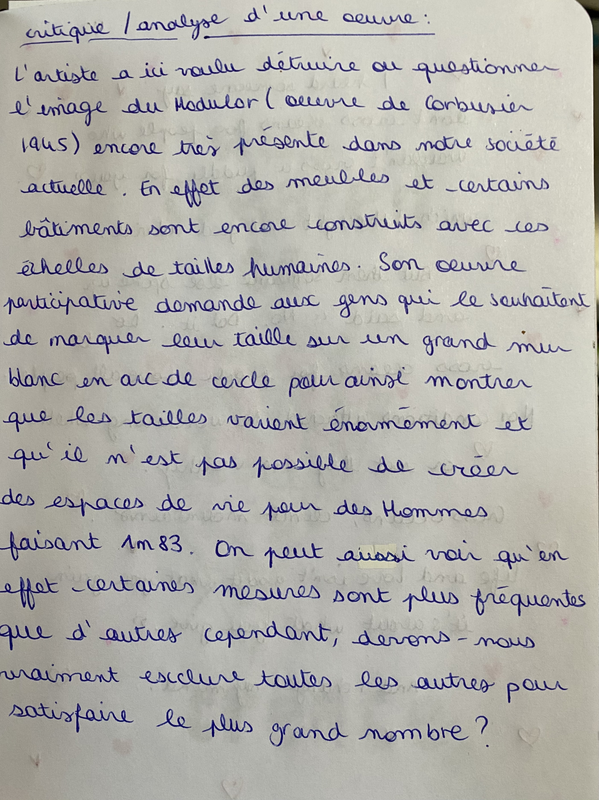 critique / analyse d'une oeuvre :
L'artiste a ici voulu détruire ou questionner
l'image du Modulor ( oeuvre de Corbusier
1945) encore très présente dans notre société
actuelle. En effet des meubles et certains
bâtiments sont encore construits avec ces
échelles de tailles humaines. Son oeuvre
participative demande aux gens qui le souhaitent
de marquer leur taille sur un grand mur
blanc en arc de cercle pour ainsi montrer
que les tailles varient énormément et
qu'il n'est pas possible de créer
des espaces de vie pour des Hommes
faisant 1m83. On peut aussi voir qu'en
effet certaines mesures sont plus fréquentes
que d'autres cependant, devons-nous
vraiment esclure toutes les autres pour
satisfaire le plus grand nombre ?